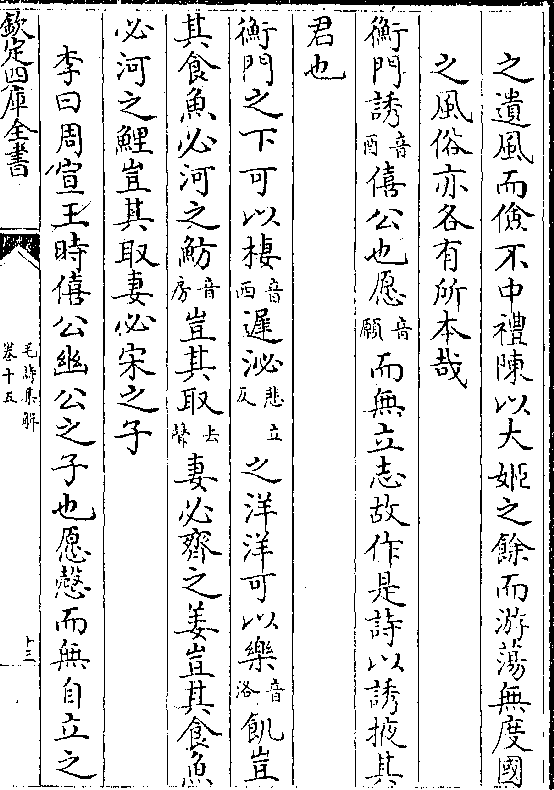 之遺風而儉不中禮陳以大姬之餘而游蕩無度國
之風俗亦各有所本哉
衡門誘音酉僖公也愿音願而無立志故作是詩以誘掖其
君也
衡門之下可以棲音西遲泌悲立反之洋洋可以樂音洛飢豈
其食魚必河之魴音房豈其取去聲妻必齊之姜豈其食魚
必河之鯉豈其取妻必宋之子
李曰周宣王時僖公幽公之子也愿慤而無自立之
欽定四庫全書
毛詩集解
卷十五
十三